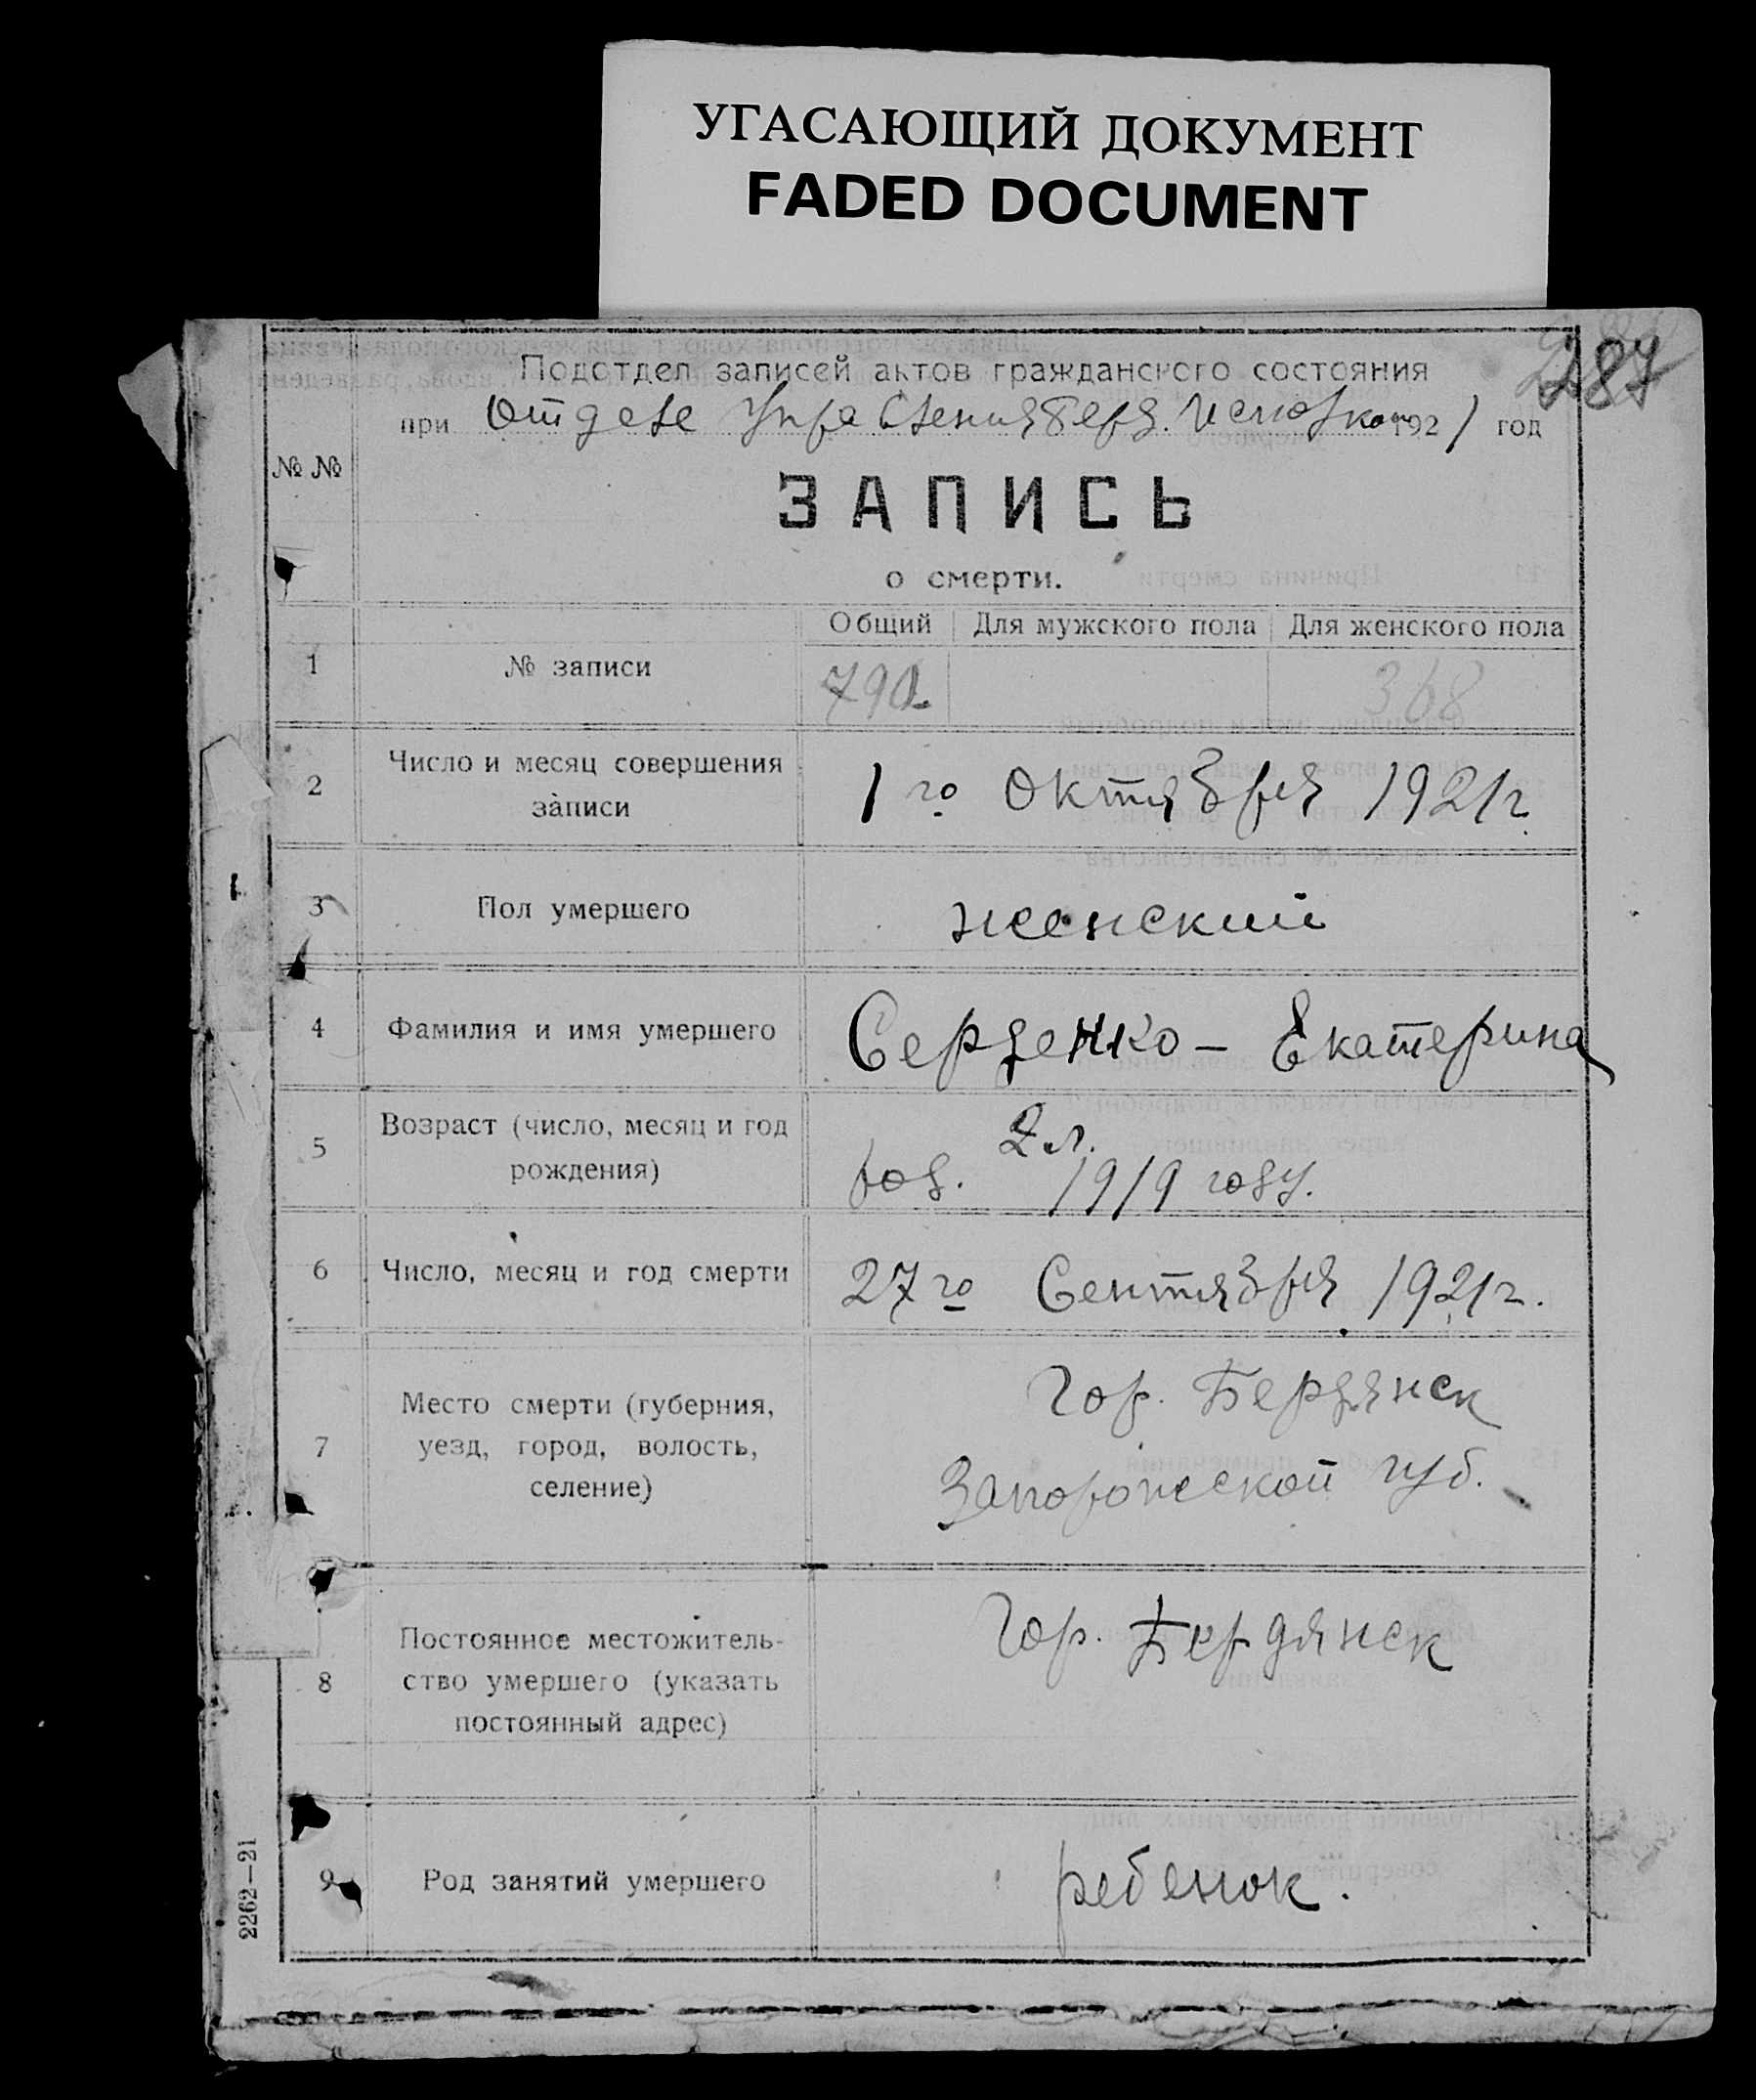 УГАСАЮЩИЙ ДОКУМЕНТ
FADED DOCUMENT
287
Подотдел записей актов гражданского состояния
при Отделе Управления Бердян. 1921 год
№ №
ЗАПИСЬ
о смерти.
Общий Для мужского пола Для женского пола
1 № записи 790 368
2 Число и месяц совершения
записи 1го Октября 1921г.
3 Пол умершего женский
4 Фамилия и имя умершего Серденко – Екатерина
5 Возраст (число, месяц и год
рождения)
2 л.
род. 1919 году.
6 Число, месяц и год смерти 27го Сентября 1921г.
7 Место смерти (губерния,
уезд, город, волость,
селение)
Гор. Бердянск
Запорожской губ.
8 Постоянное местожитель-
ство умершего (указать
постоянный адрес)
Гор. Бердянск
9 Род занятий умершего ребенок.
2262—21